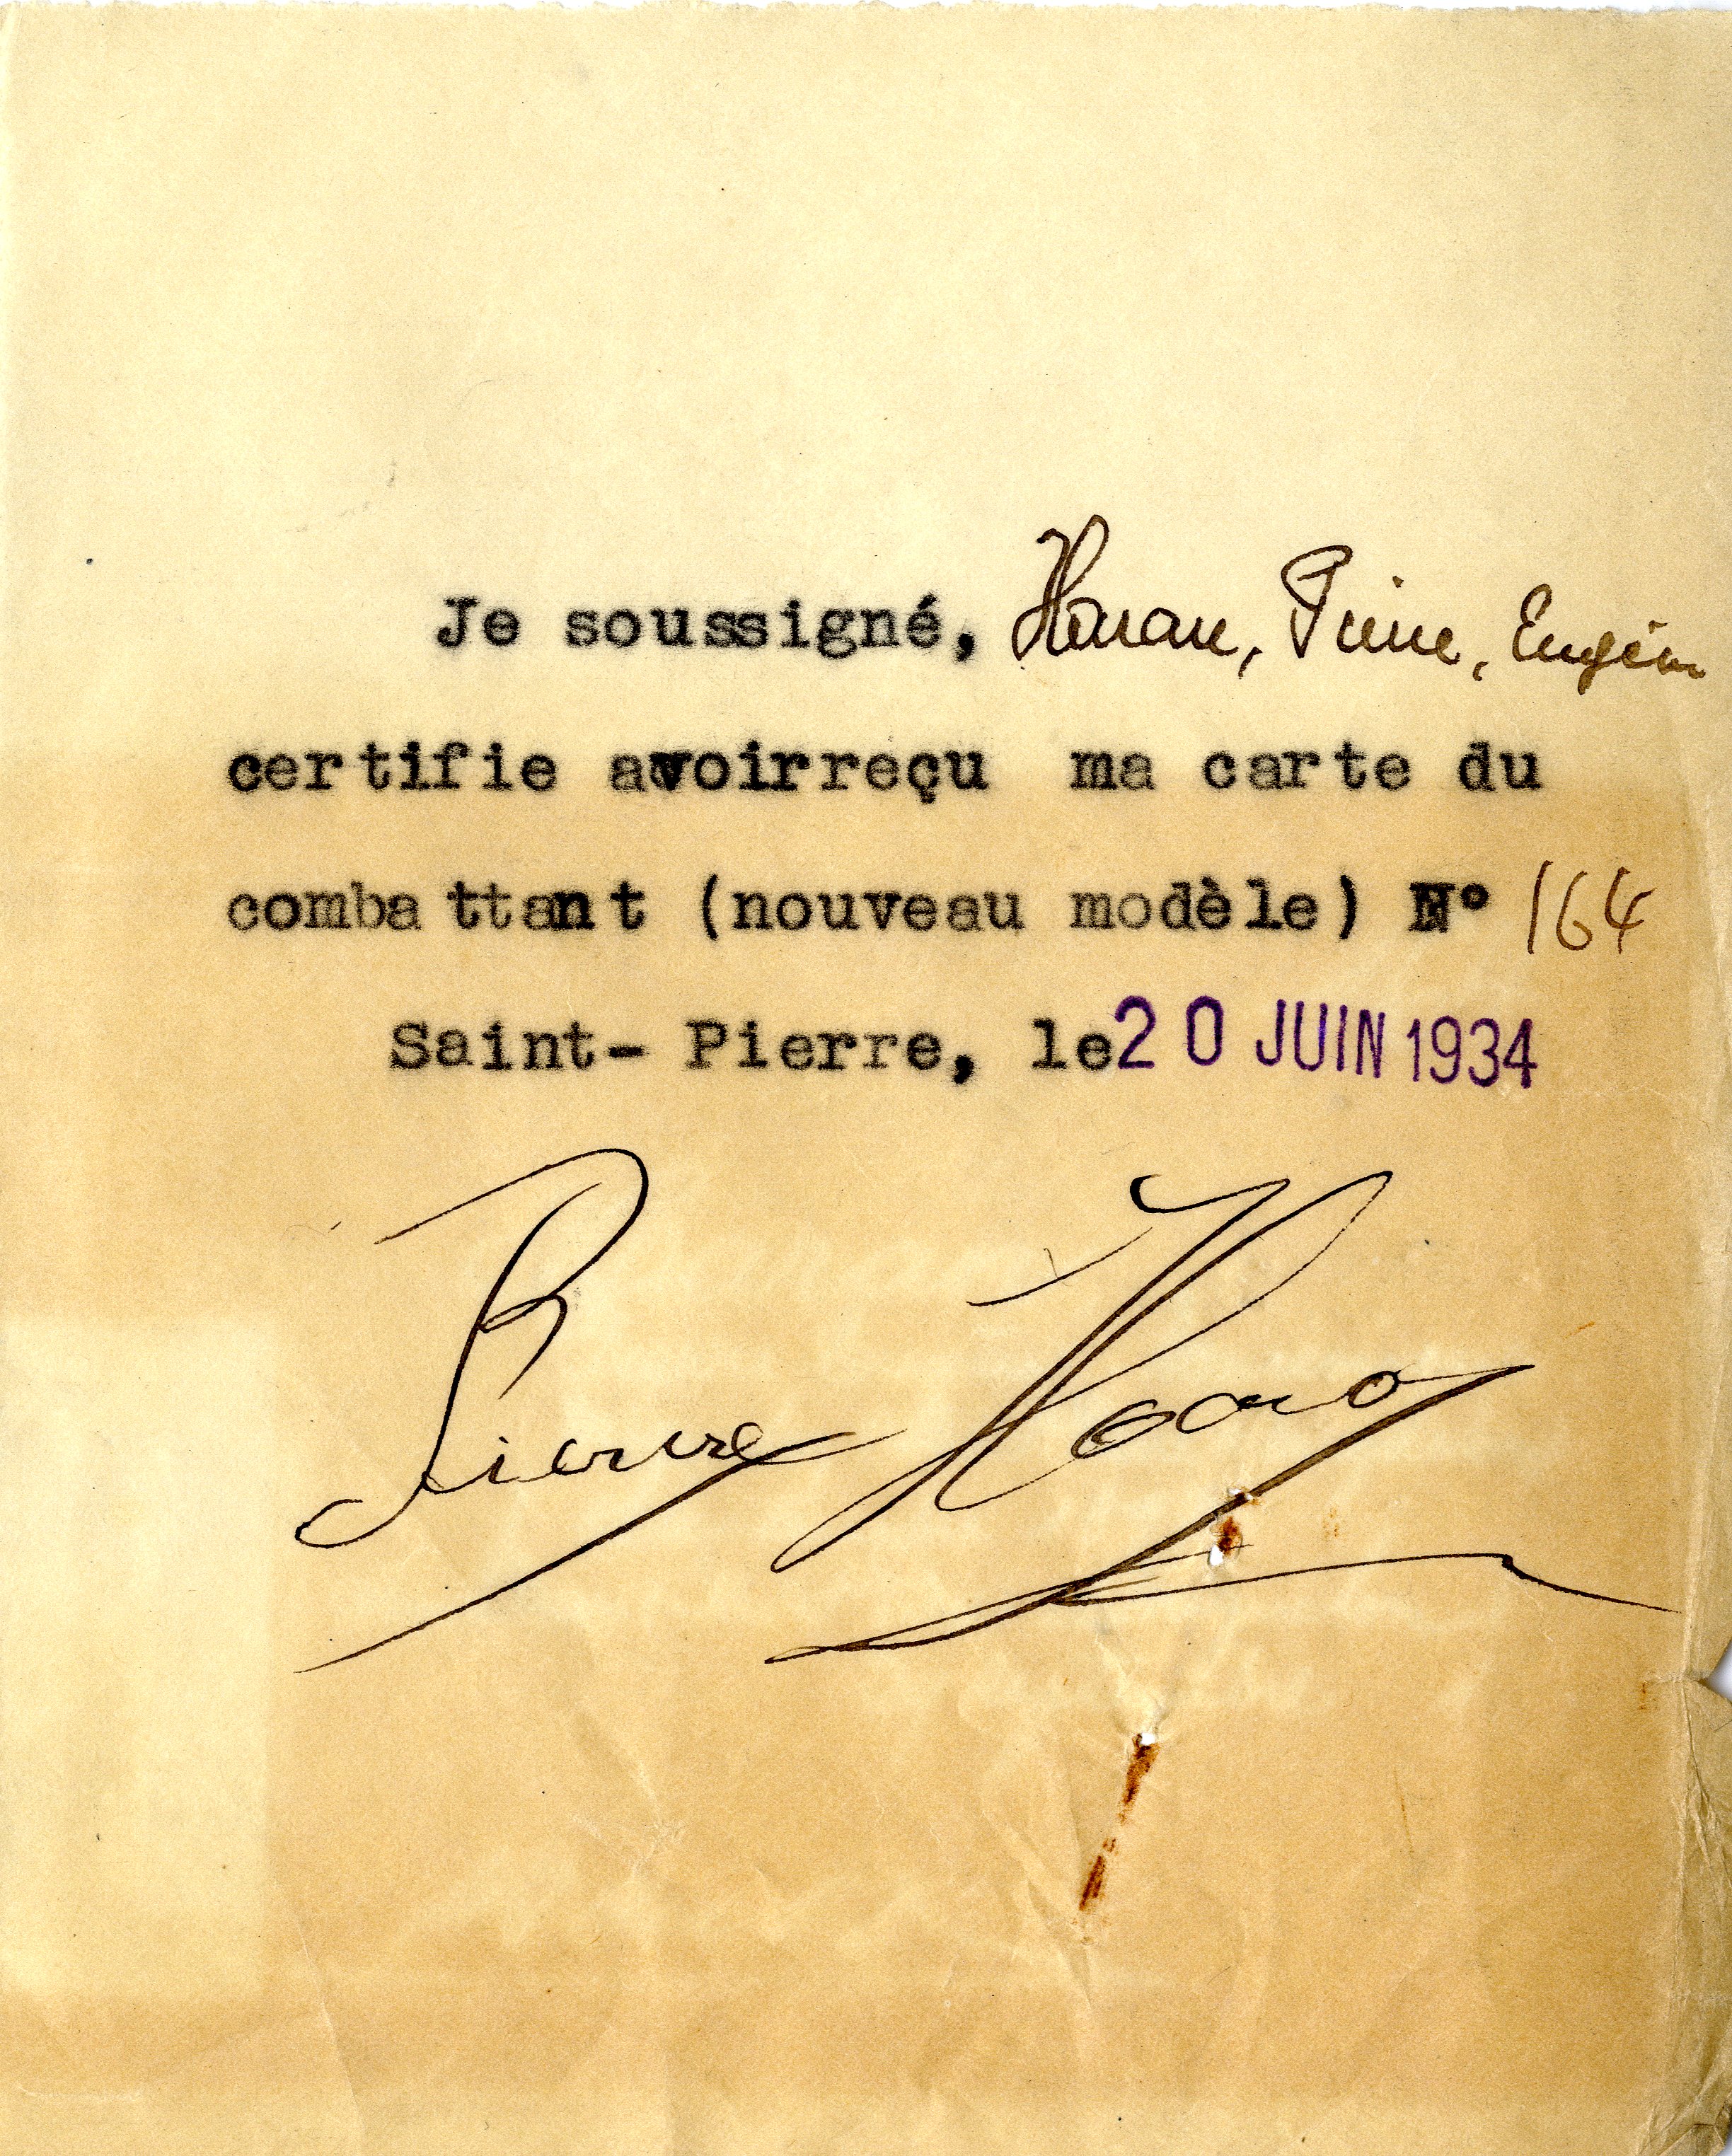 Je soussigné, Haran, Pierre, Eugène
certifie avoirreçu ma carte du
combattant (nouveau modèle) N° 164
Saint- Pierre, le 20 JUIN 1934
Pierre